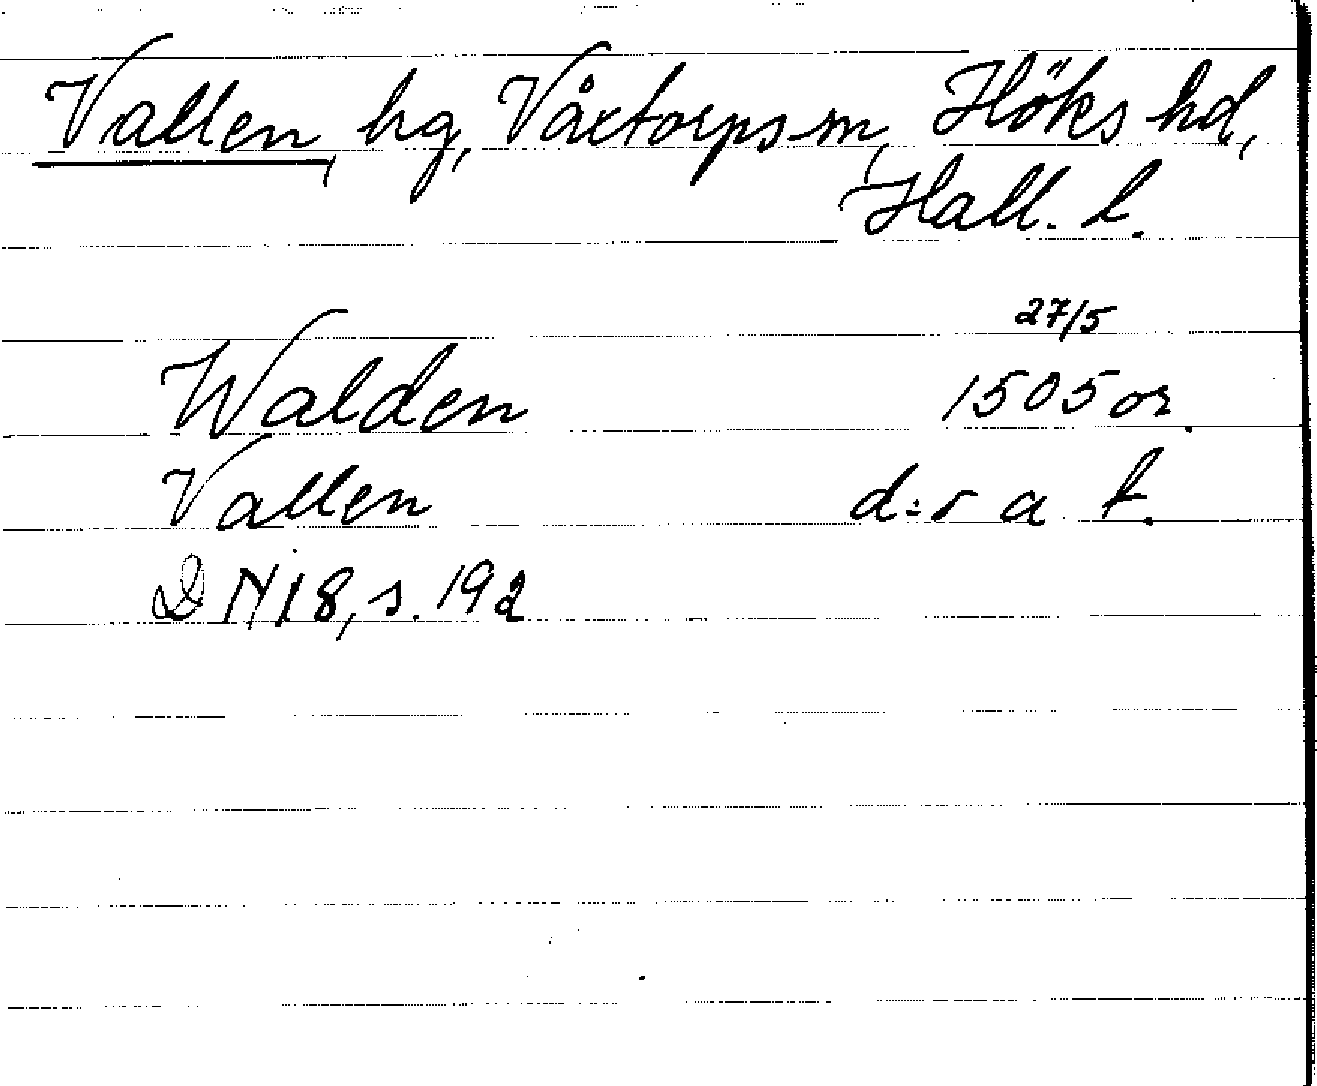 Vallen, hg, Våxtorps sn, Höks hd,
Hall. l.
27/5
Walden 1505 or.
Vallen d:o a t.
DN 18, s. 192